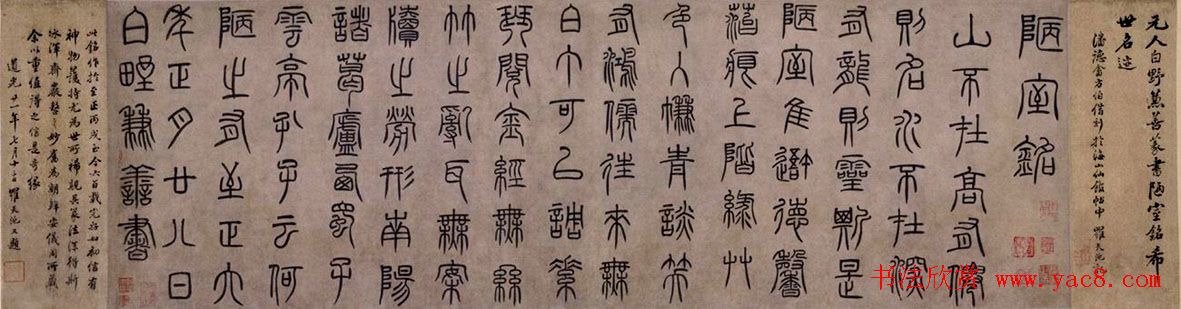 元人白野兼善篆書陋室銘希
世名迹
潘德畬方伯借刻於海山仙館帖中 羅天池
陋室銘
山不在高有僊
則名水不在深
有龍則靈斯是
陋室惟吾德馨
苔痕上階綠艸
色入簾青談笑
有鴻儒往來無
白丁可以調素
琴閱金經無絲
竹之亂耳無案
牘之勞形南陽
諸葛廬西蜀子
雲亭孔子云何
陋之有至正六
年正月廿八日
白野兼善書
此銘作於至正丙戌至今六百載完好如初信有
神物護持尤為世所稀覯其篆法深得斯
冰渾齊嚴整之妙舊為朝鮮安儀周所藏
余以重值得之信是奇緣
道光廿一年七月十二日 羅天池又題
书法欣赏 www.yac8.com